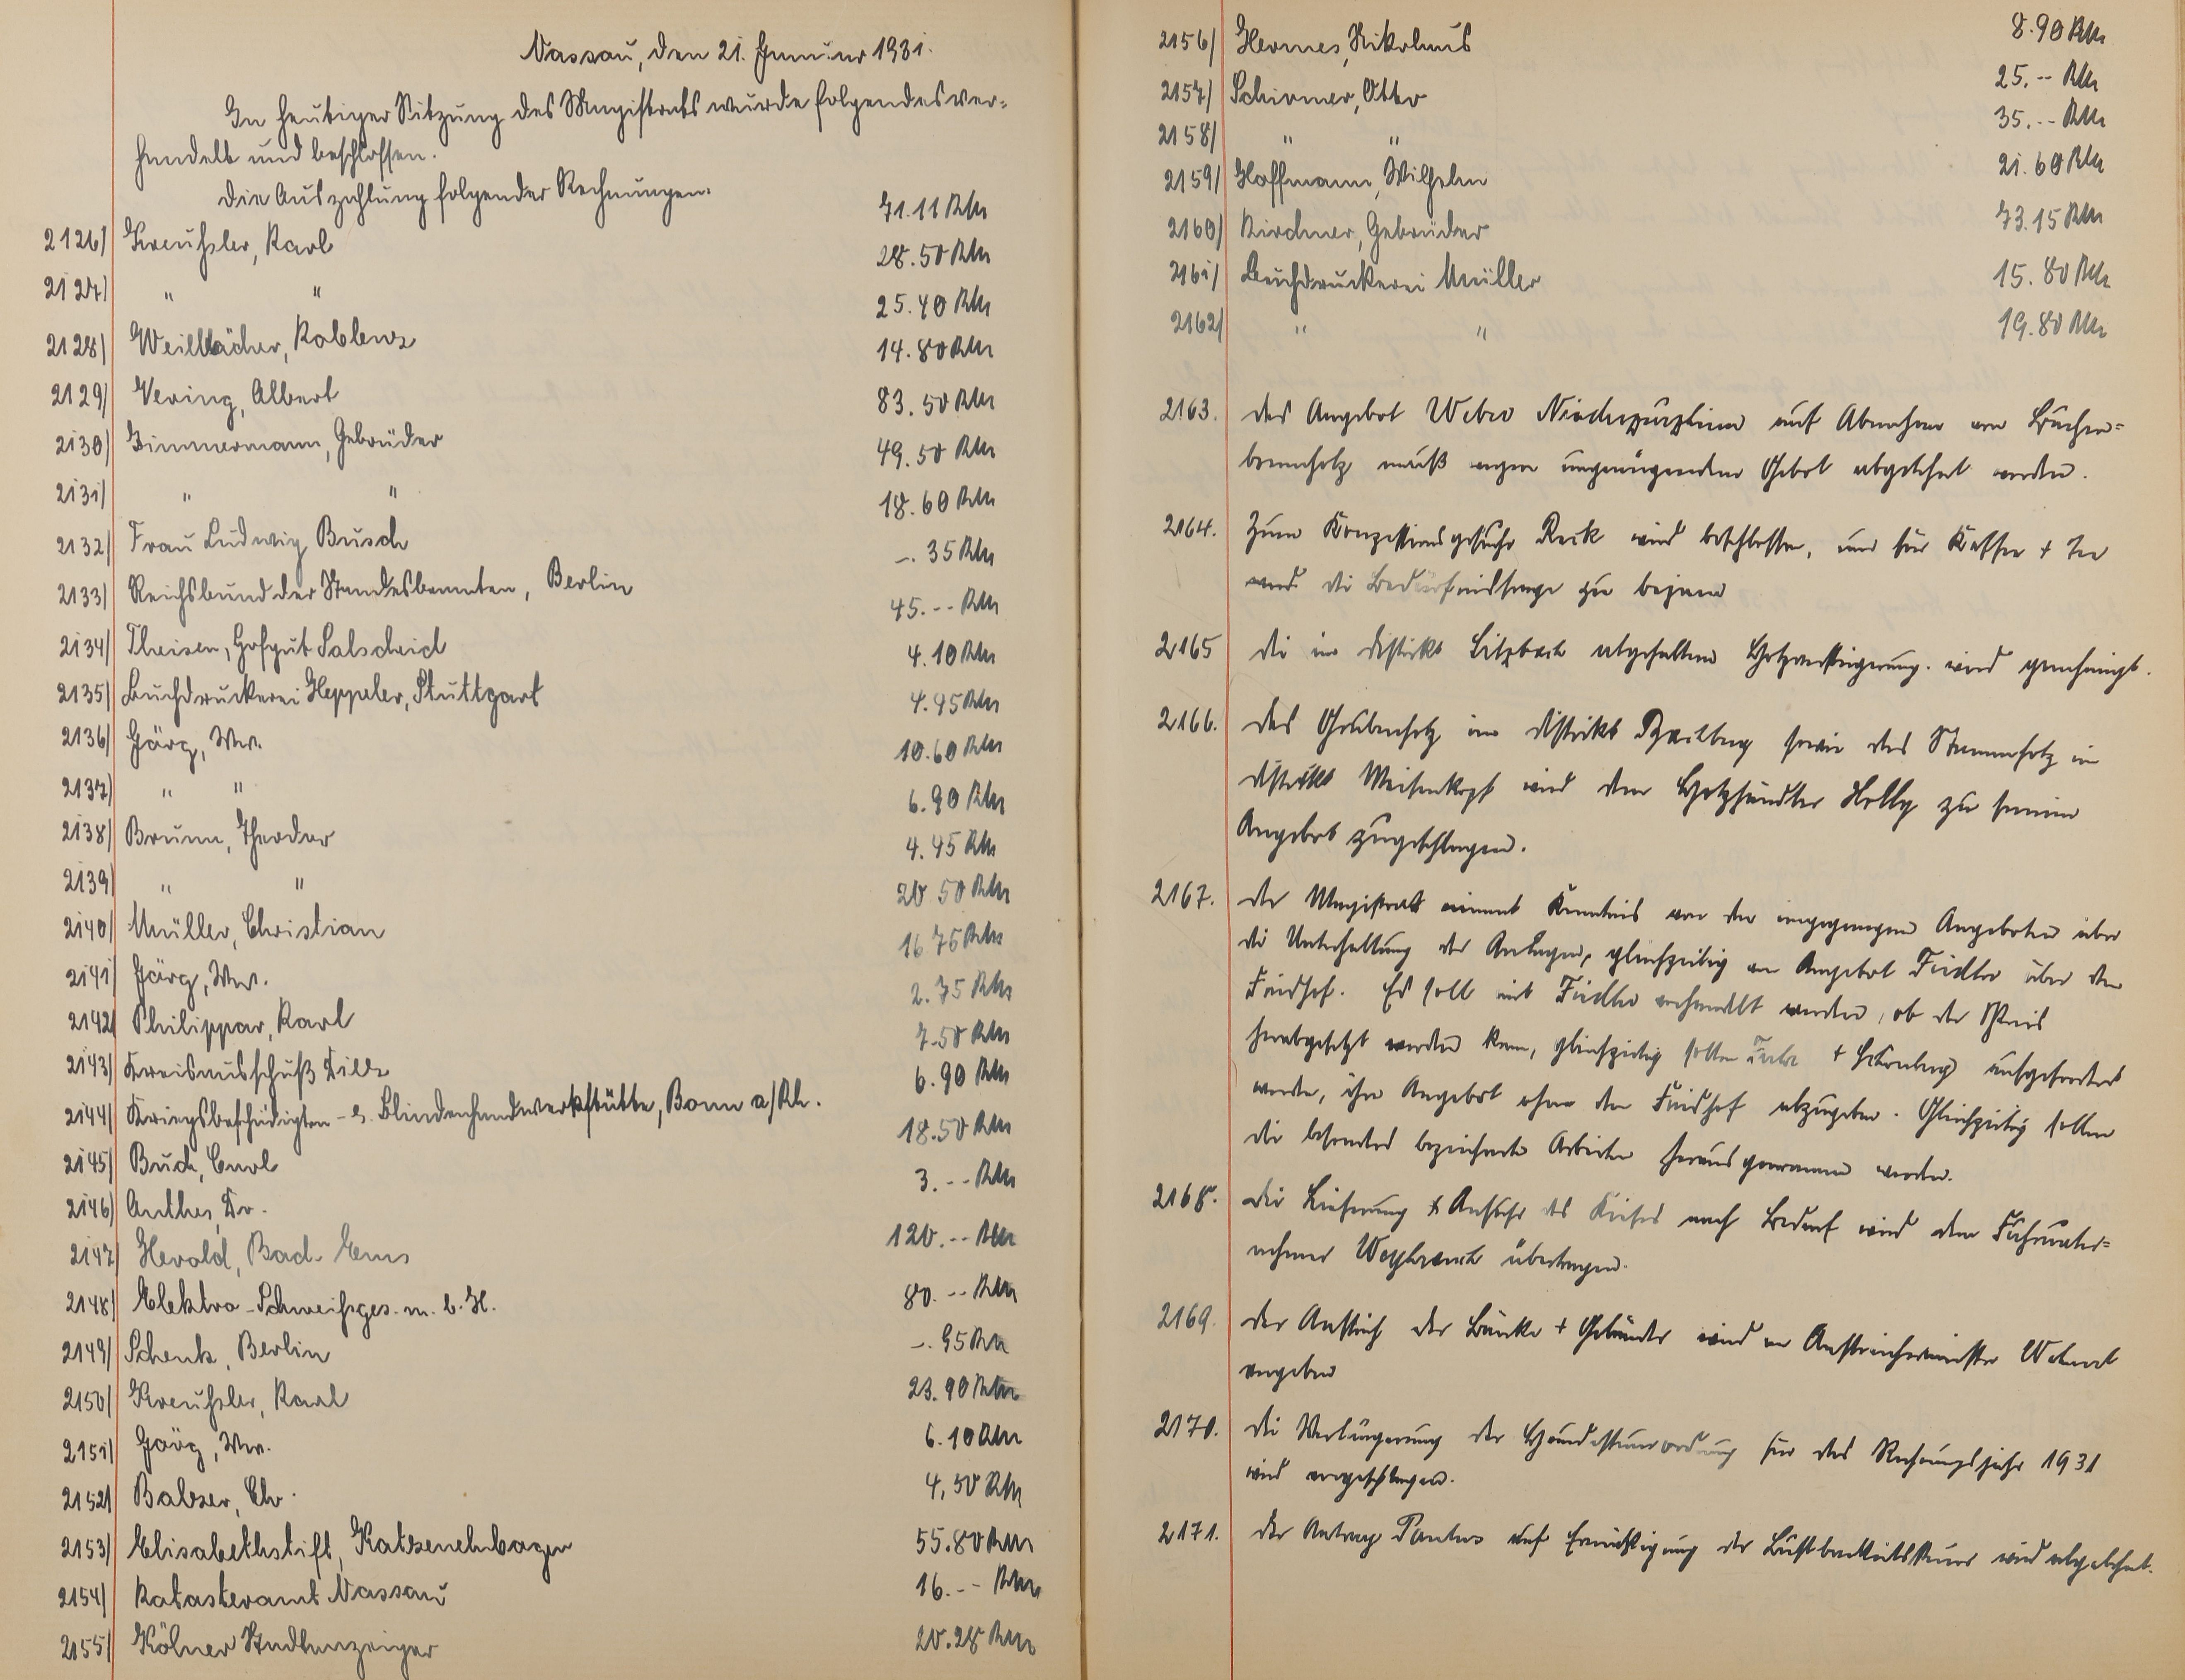 Nassau, den 21. Januar 1931.
In heutiger Sitzung des Magistrats wurde folgendes ver-
handelt und beschlossen.
Die Auszahlung folgender Rechnungen.
2126) Kreußler, Karl 71.11 RM
2127) " " 28.50 RM
2128) Weilbächer, Koblenz 25.40 RM
2129) Vering, Albert 14.80 RM
2130) Zimmermann, Gebrüder 83.50 RM
2131) " " 49.50 RM
2132) Frau Ludwig Busch 18.60 RM
2133) Reichsbund der Standesbeamten, Berlin -.35 RM
2134) Theisen, Hofgut Salscheid 45.-- RM
2135) Buchdruckerei Heppeler, Stuttgart 4.10 RM
2136) Görg, Ww. 4.45 RM
2137) " " 10.60 RM
2138) Brunn, Theodor 6.90 RM
2139) " " 4.45 RM
2140) Müller, Christian 20 50 RM
2141) Görg, Ww. 16 75 RM
2142) Philippar, Karl 2.75 RM
2143) Kreisausschuß Dillz 7.50 RM
2144) Kriegsbeschädigten- Blindenhandwerkstätte, Bonn a/Rh. 6.90 RM
2145) Buch, Carl 18.50 RM
2146) Anthes, Dr. 3.-- RM
2147) Herold, Bad-Ems 120.-- RM
2148) Elektro-Schweißges. m. b. H. 80.-- RM
2149) Schenk, Berlin -.95 RM
2150) Kreußler, Karl 23.90 RM
2151) Görg, Ww. 6.10 RM
2152) Balzer, Chr. 4,50 RM
2153) Elisabethstift, Katzenelnbogen 55.80 RM
2154) Katasteramt Nassau 16.-- RM
2155) Kölner Stadtanzeiger 20.28 RM
2156) Hermes, Nikolaus 8.90 RM
2157) Schirmer, Otto 25.-- RM
2158) " " 35.-- RM
2159) Hoffmann, Wilhelm 21.60 RM
2160) Kirchner, Gebrüder 73.15 RM
2161) Buchdruckerei Müller 15.80 RM
2162) " " 19.80 RM
2163. Das Angebot Weber auf Abnahme von Buchen-
brennholz muß wegen ungenügendem Gebot abgelehnt werden.
2164. Zum Konzessionsgesuche Reck wird beschlossen, nur für Kaffee + Tee
wird die Bedürfnisfrage zu bejahen
2165 Die im Distrikt abgehaltene Holzversteigerung wird genehmigt.
2166. Das Grubenholz im Distrikt sowie das Stammholz im
Distrikt Meisenkopf wird dem Holzhändler zu seinem
Angebot zugeschlagen.
2167. Der Magistrat nimmt Kenntnis von den eingegangenen Angeboten über
die Unterhaltung der Anlagen, gleichzeitig von Angebot Fiedler über den
Friedhof. Es soll mit Fiedler verhandelt werden, ob der Preis
herabgesetzt werden kann, gleichzeitig sollen + aufgefordert
werden, ihr Angebot ohne den Friedhof abzugeben. Gleichzeitig sollen
die besonders bezeichneten Arbeiten herausgenommen werden.
2168. Die Lieferung & Anfuhr des Kieses nach Bedarf wird dem Fuhrunter-
nehmer übertragen.
2169. Der Anstrich der Bänke + Geländer wird an Anstreichermeister
vergeben
2170. Die Verlängerung der Hundesteuerordnung für das Rechnungsjahr 1931
wird vorgeschlagen.
2171. Der Antrag auf Ermäßigung der Lustbarkeitssteuer wird abgelehnt.